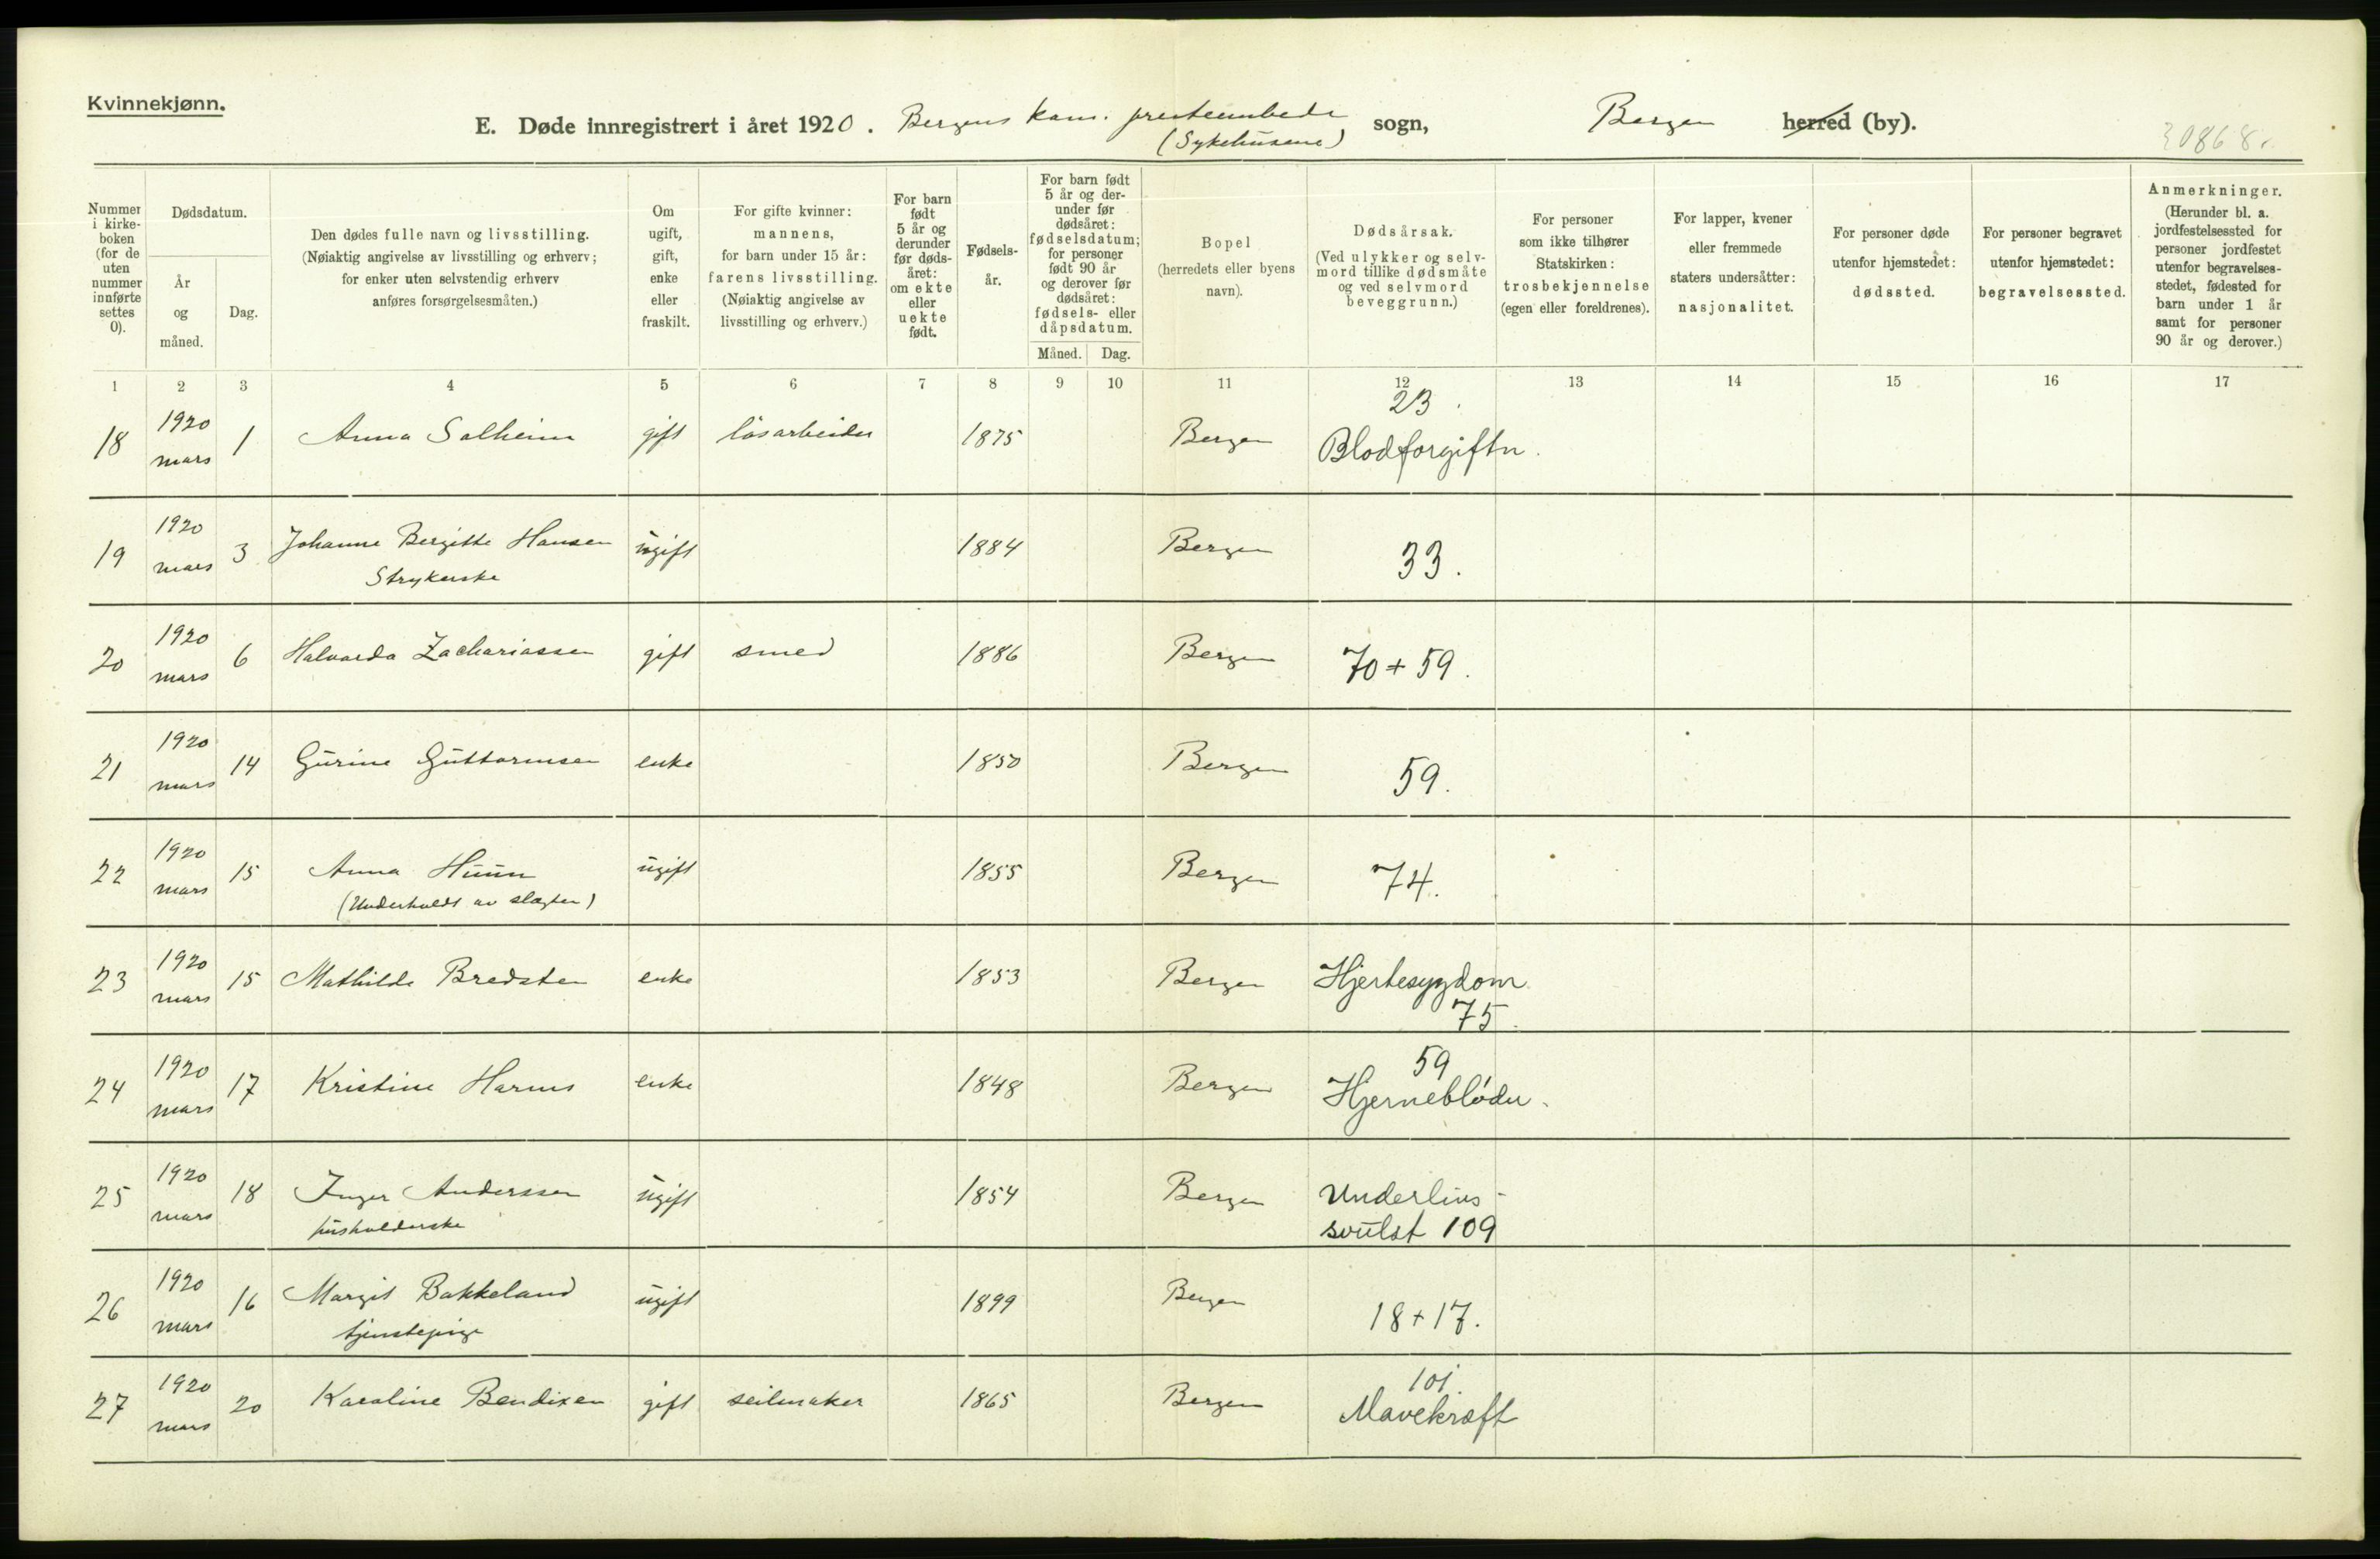 Kvinnekjønn.
E. Døde innregistrert i året 1920. Bergens kom. presteembede (Sykehusene) sogn, Bergen herred (by).
Nummer i kirkeboken (for de uten nummer innførte settes 0).
Dødsdatum.
År og måned.
Dag.
Den dødes fulle navn og livsstilling.
(Nøiaktig angivelse av livsstilling og erhverv; for enker uten selvstendig erhverv anføres forsørgelsesmåten.)
Om ugift, gift, enke eller fraskilt.
For gifte kvinner: mannens, for barn under 15 år: farens livsstilling.
(Nøiaktig angivelse av livsstilling og erhverv.)
For barn født 5 år og derunder før dødsåret: om ekte eller uekte født.
Fødselsår.
For barn født 5 år og derunder før dødsåret: fødselsdatum; for personer født 90 år og derover før dødsåret: fødsels- eller dåpsdatum.
Måned. Dag.
Bopel (herredets eller byens navn).
Dødsårsak.
(Ved ulykker og selvmord tillike dødsmåte og ved selvmord beveggrunn.)
For personer som ikke tilhører Statskirken: trosbekjennelse (egen eller foreldrenes).
For lapper, kvener eller fremmede staters undersåtter: nasjonalitet.
For personer døde utenfor hjemstedet: dødssted.
For personer begravet utenfor hjemstedet: begravelsessted.
Anmerkninger.
(Herunder bl. a. jordfestelsessted for personer jordfestet utenfor begravelsesstedet, fødested for barn under 1 år samt for personer 90 år og derover.)
1 2 3 4 5 6 7 8 9 10 11 12 13 14 15 16 17
18 1920 mars 1 Anna Solheim gift løsarbeider 1875 Bergen 23. Blodforgiftn.
19 1920 mars 3 Johanne Bergitte Hansen ugift 1884 Bergen 33.
Strykerske
20 1920 mars 6 Halvarda Zachariassen gift smed 1886 Bergen 70 + 59.
21 1920 mars 14 Gurine Guttormsen enke 1850 Bergen 59.
22 1920 mars 15 Anna Huun ugift 1855 Bergen 74.
(Underholdt av slægten)
23 1920 mars 15 Mathilde Bredsten enke 1853 Bergen Hjertesygdom 75.
24 1920 mars 17 Kristine Harms enke 1848 Bergen 59 Hjernebløda.
25 1920 mars 18 Inger Anderssen ugift 1854 Bergen Underlivs-
husholderske svulst 109
26 1920 mars 16 Margit Bakkeland ugift 1899 Bergen 18 + 17.
tjenestepige
27 1920 mars 20 Karoline Bendixen gift seilmaker 1865 Bergen 101. Mavekræft